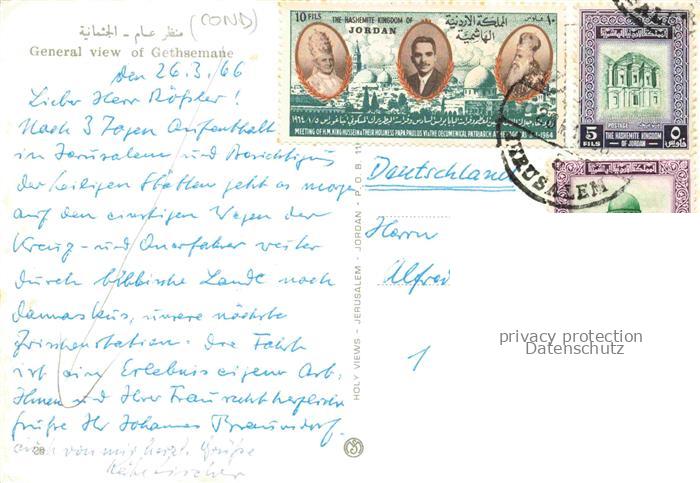 منظر عام - الجثمانية (COND)
General view of Gethsemane
den 26.3.66
Lieber Herr Rößler!
Nach 3 Tagen Aufenthalt
in Jerusalem und Besichtigung
der heiligen Stätten geht es morgen
auf den einstigen Wegen der
Kreuz- und Querfahrer weiter
durch biblische Lande nach
Damaskus, unsere nächste
Zwischenstation. Die Fahrt
ist ein Erlebnis eigener Art.
Ihnen und Ihrer Frau recht herzliche
Grüße Ihr Johannes Braunsdorf.
auch von mir herzl. Grüße
28
HOLY VIEWS - JERUSALEM - JORDAN - P.O.B. 11
10 FILS
THE HASHEMITE KINGDOM OF
JORDAN
المملكة الاردنية
الهاشمية
١٠ فلوس
MEETING OF H.M. KING HUSSEIN & THEIR HOLINESS PAPA PAULOS VI & THE OECUMENICAL PATRIARCH 1964
POSTAGE
5
FILS
THE HASHEMITE KINGDOM
OF JORDAN
٥
فلوس
JERUSALEM
Deutschland
Herrn
Alfred
1
privacy protection
Datenschutz